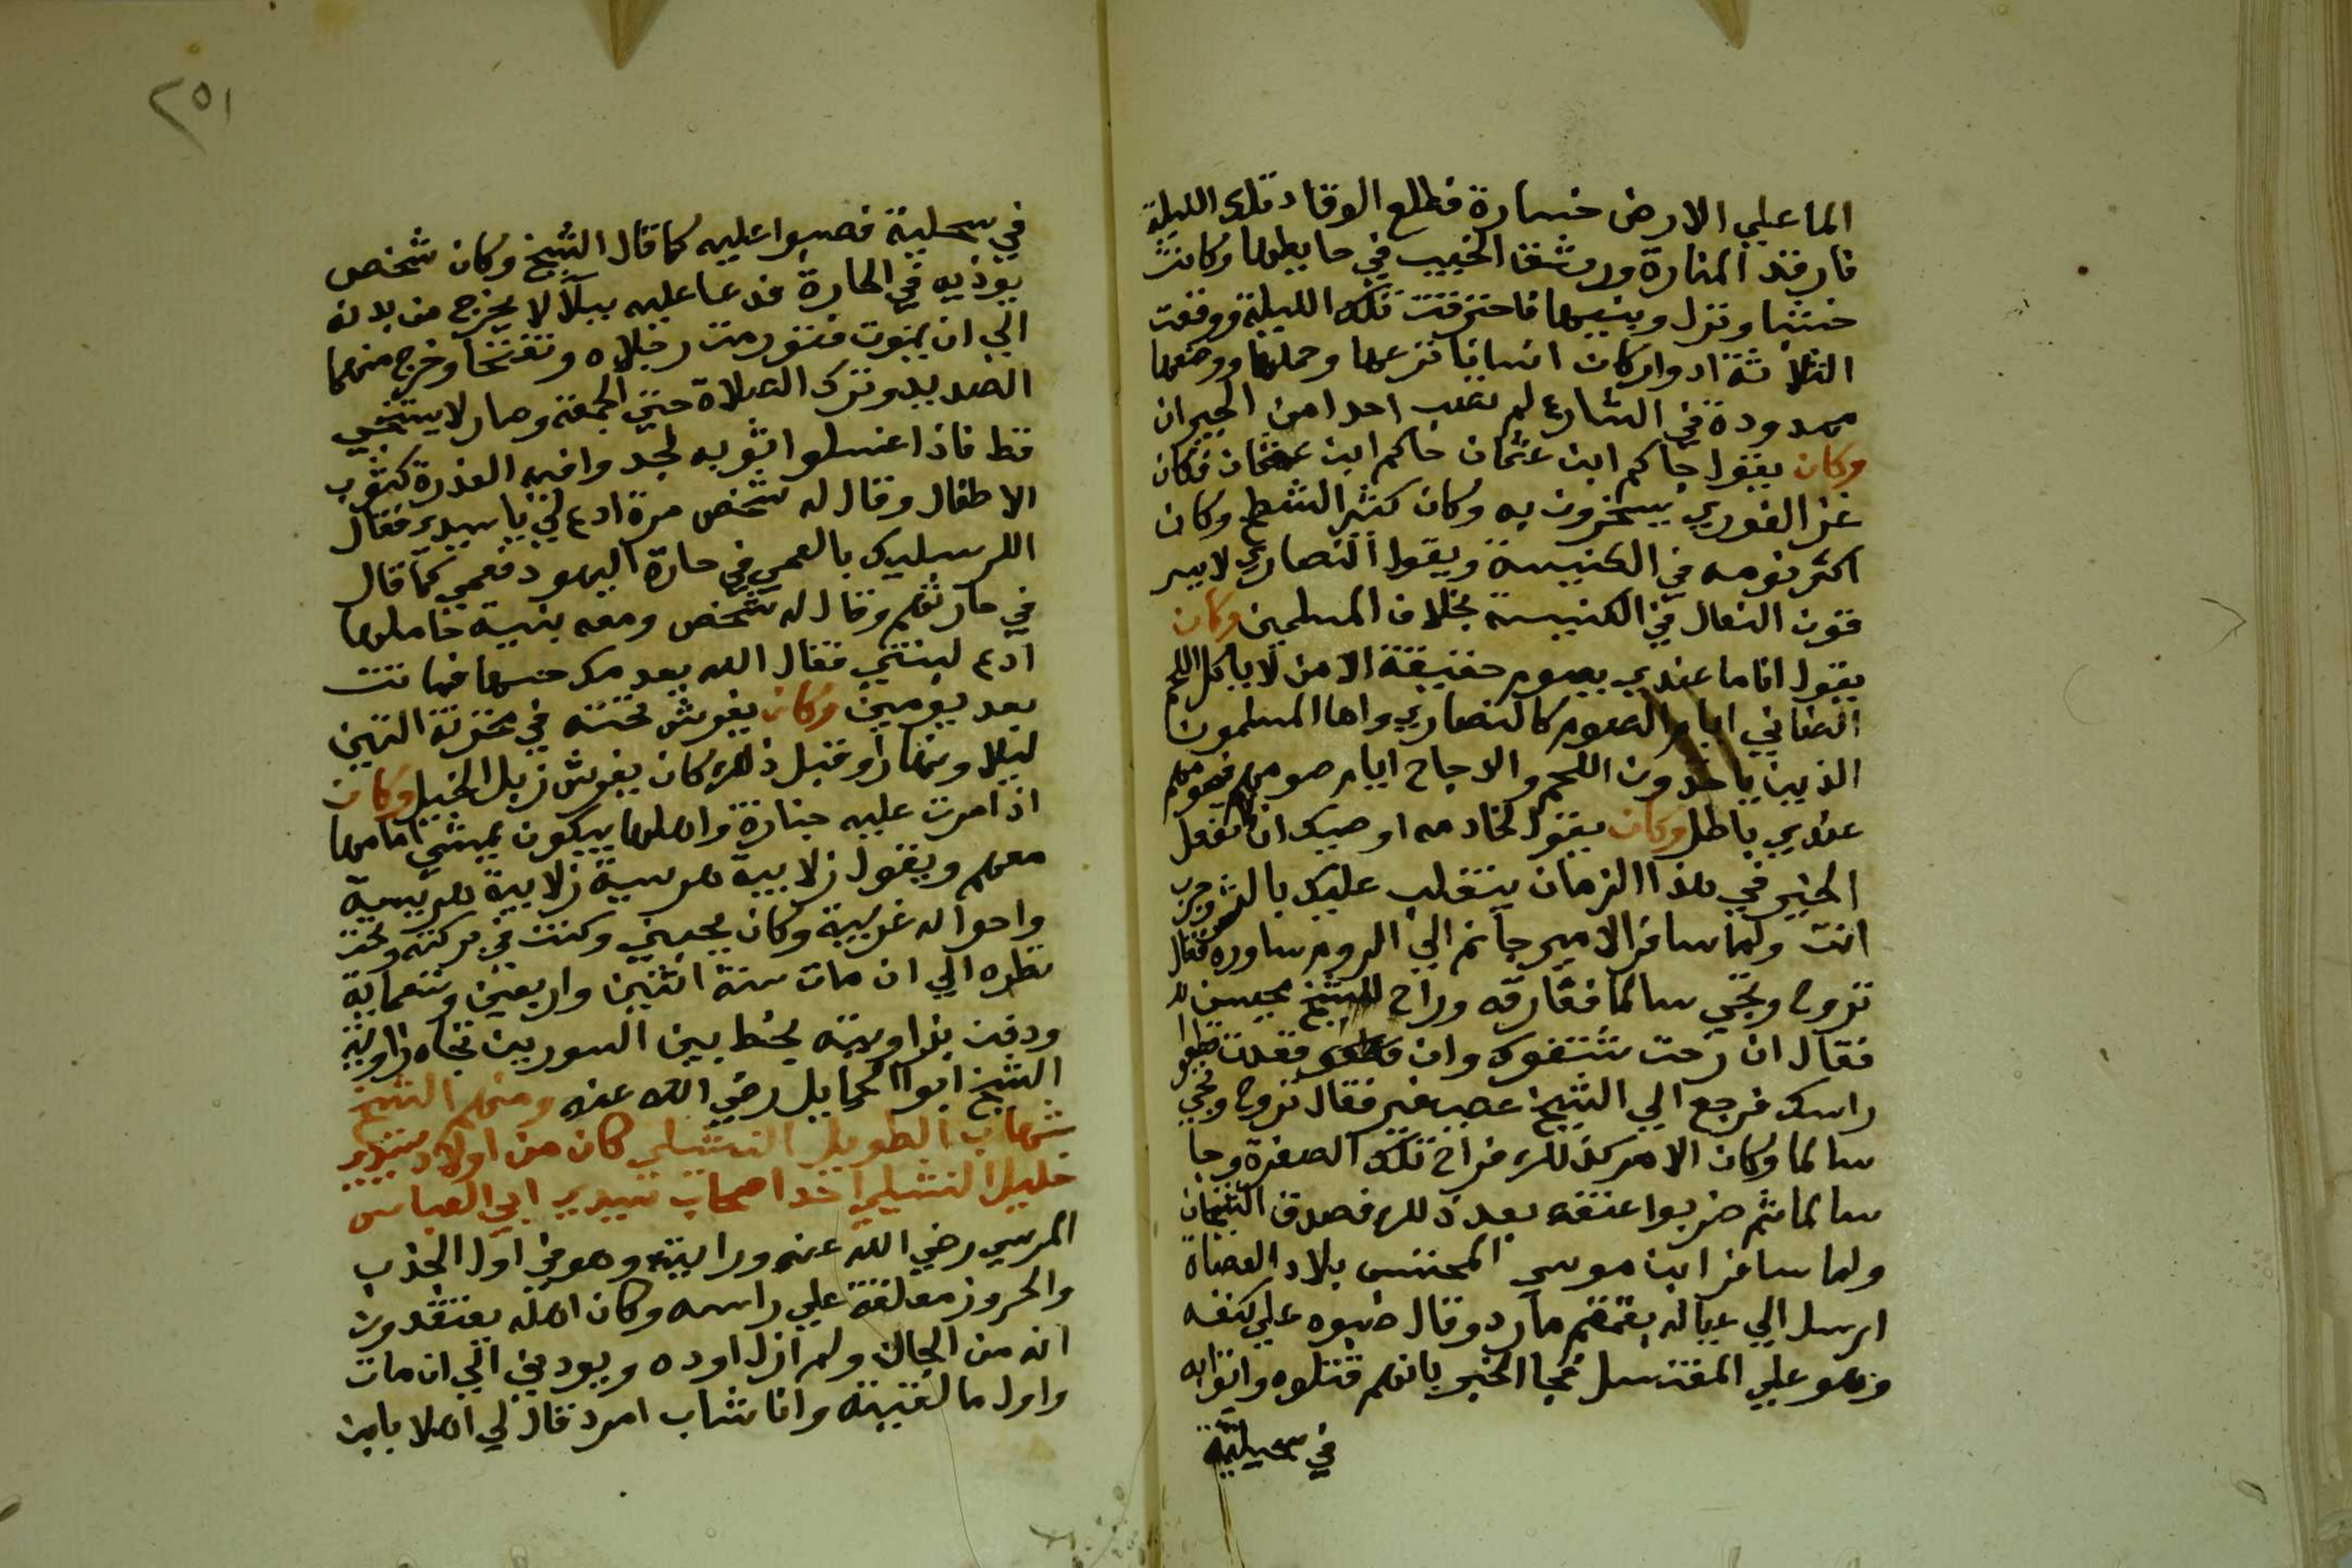 الما علي الارض خسارة فطلع الوقاد تلك الليلة
فاوقد المنارة ورشق الخبيب في حايطها وكانت
خشبا ونزل ونسيها فاحترقت تلك الليلة ووقعت
الثلاثة ادوار كان انسانا نزعها وحملها ووضعها
ممدودة في الشارع لم تصب احدا من الجيران
وكان يقول جاكم ابن عثمان جاكم ابن عثمان فكان
غز الغوري يسخرون به وكان كثير الشطح وكان
اكثر نومه في الكنيسة ويقول النصاري لا يسر
قون النعال في الكنيسة بخلاف المسلمين وكان
يقول انا ما عندي يصوم حقيقة الا من لا ياكل اللحم
الضاني ايام الصوم كالنصاري واما المسلمون
الذين ياخدون اللحم والدجاج ايام صومهم فصومهم
عندي باطل وكان يقول لخادمه اوصيك ان لا تفعل
الخير في هذا الزمان ينقلب عليك بالشر وجرب
انت ولما سافر الامير جانم الي الروم شاوره فقال
تروح وتجي سالما ففارقه وراح للشيخ محيسن
فقال ان رحت شنقوك وان قعدت قطعوا
راسك فرجع الي الشيخ عصيفير فقال تروح وتجي
سالما وكان الامر كذلك فراح تلك السفرة وجا
سالما ثم ضربوا عنقه بعد ذلك فصدق الشيخان
ولما سافر ابن موسي المحتسب بلاد العصاة
ارسل الي عياله بقمقم ماورد وقال صبوه علي كتفه
وهو علي المغتسل فجا الخبر بانهم قتلوه واتوا به
في سحيلية
٢٥١
في سحلية فصبوا عليه كما قال الشيخ وكان شخص
يوذيه في الحارة فدعا عليه ببلا لا يخرج من بدنه
الي ان يموت فتورمت رجلاه وتنفختا وخرج منهما
الصديد وترك الصلاة حتي الجمعة وصار لا يستنجي
قط فاذا غسلوا ثوبه يجدوا فيه العذرة كثوب
الاطفال وقال له شخص مرة ادع لي يا سيدي فقال
الله يبليك بالعمي في حارة اليهود فعمي كما قال
في حارتهم وقال له شخص ومعه بنية حاملها
ادع لبنتي فقال الله يعدمك حسها فماتت
بعد يومين وكان يفرش تحته في مخزنه التبن
ليلا ونهارا وقبل ذلك كان يفرش زبل الخيل وكان
اذا مرت عليه جنازة واهلها يبكون يمشي امامها
معهم ويقول زلابية هريسة زلابية هريسة
واحواله غريبة وكان يحبني وكنت في بركته وتحت
نظره الي ان مات سنة اثنين واربعين وتسعماية
ودفن بزاويته بخط بين السورين تجاه زاوية
الشيخ ابو الحمايل رضي الله عنه ومنهم الشيخ
شهاب الطويل النشيلي كان من اولاد سيدي
خليل النشيلي احد اصحاب سيدي ابي العباس
المرسي رضي الله عنه ورايته وهو في اول الجذب
والحروز معلقة علي راسه وكان اهله يعتقدون
انه من الجان ولم ازل اوده ويودني الي ان مات
واول ما لقيته وانا شاب امرد قال لي اهلا بابن